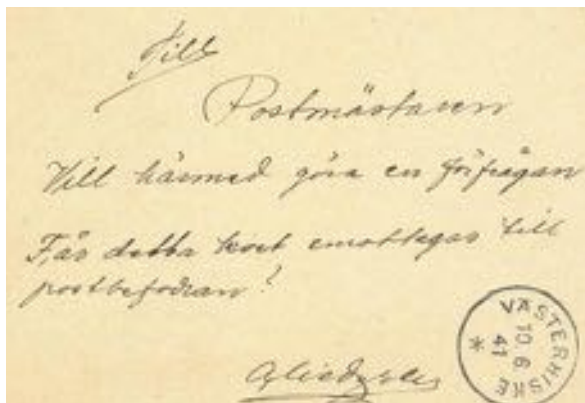 Till
Postmästaren
Vill härmed göra en förfrågan
Får detta kort emottagas till
postbefodran!
VÄSTERHISKE
10.6
41
*